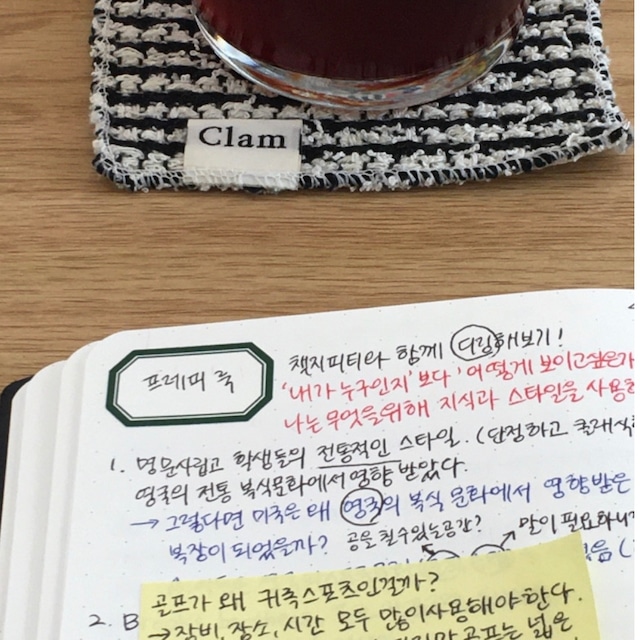 Clam
프레피 룩
챗지피티와 함께 디깅해보기!
'내가 누구인지' 보다 '어떻게 보이고싶은가
나는 무엇을위해 지식과 스타일을 사용
1. 명문사립고 학생들의 전통적인 스타일. (단정하고 클래식
영국의 전통 복식문화에서 영향 받았다.
→ 그렇다면 미국은 왜 영국의 복식 문화에서 영향받은
복장이 되었을까? 공을 칠수있는공간? 말이 필요하니
음 (
2. B
골프가 왜 귀족스포츠인걸까?
→ 장비, 장소, 시간 모두 많이사용해야한다.
골프는 넓은